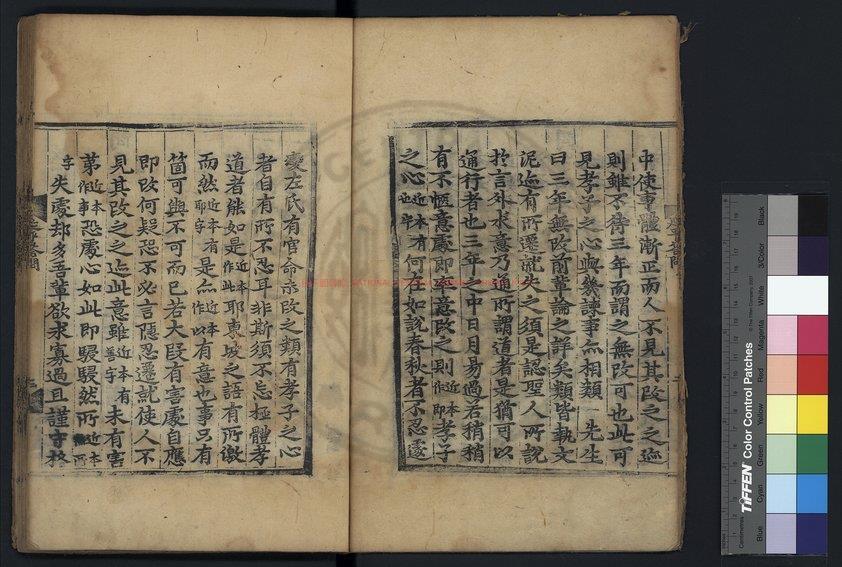 中使事體漸正而人不見其改之之迹
則雖不待三年而謂之無改可也此可
見孝子之心與幾諫事亦相類一先生
曰三年無改前輩論之詳矣類皆執文
泥迹有所遷就失之須是認聖人所說
於言外求意乃通所謂道者是猶可以
通行者也三年之中日月易過若稍稍
有不愜意處即率意改之則近本作即孝子
之心近本有也字何在如說春秋者不忍遽
變左氏有官命未改之類有孝子之心
者自有所不忍耳非斯須不忘極體孝
道者能如是近本作此耶東坡之語有所激
而然近本有耶字是亦近本作以有意也事只有
箇可與不可而已若大段有害處自應
即改何疑恐不必言隱忍遷就使人不
見其改之之迹此意雖近本有善字未有害
第近本作事恐處心如此即駸駸然所近本
字失處却多吾輩欲求寡過且謹守格
延平答問
二
延平答問
三
Tiffen Color Control Patches
© The Tiffen Company, 2007
Centimetres
Blue
Cyan
Green
Yellow
Red
Magenta
White
3/Color
Black